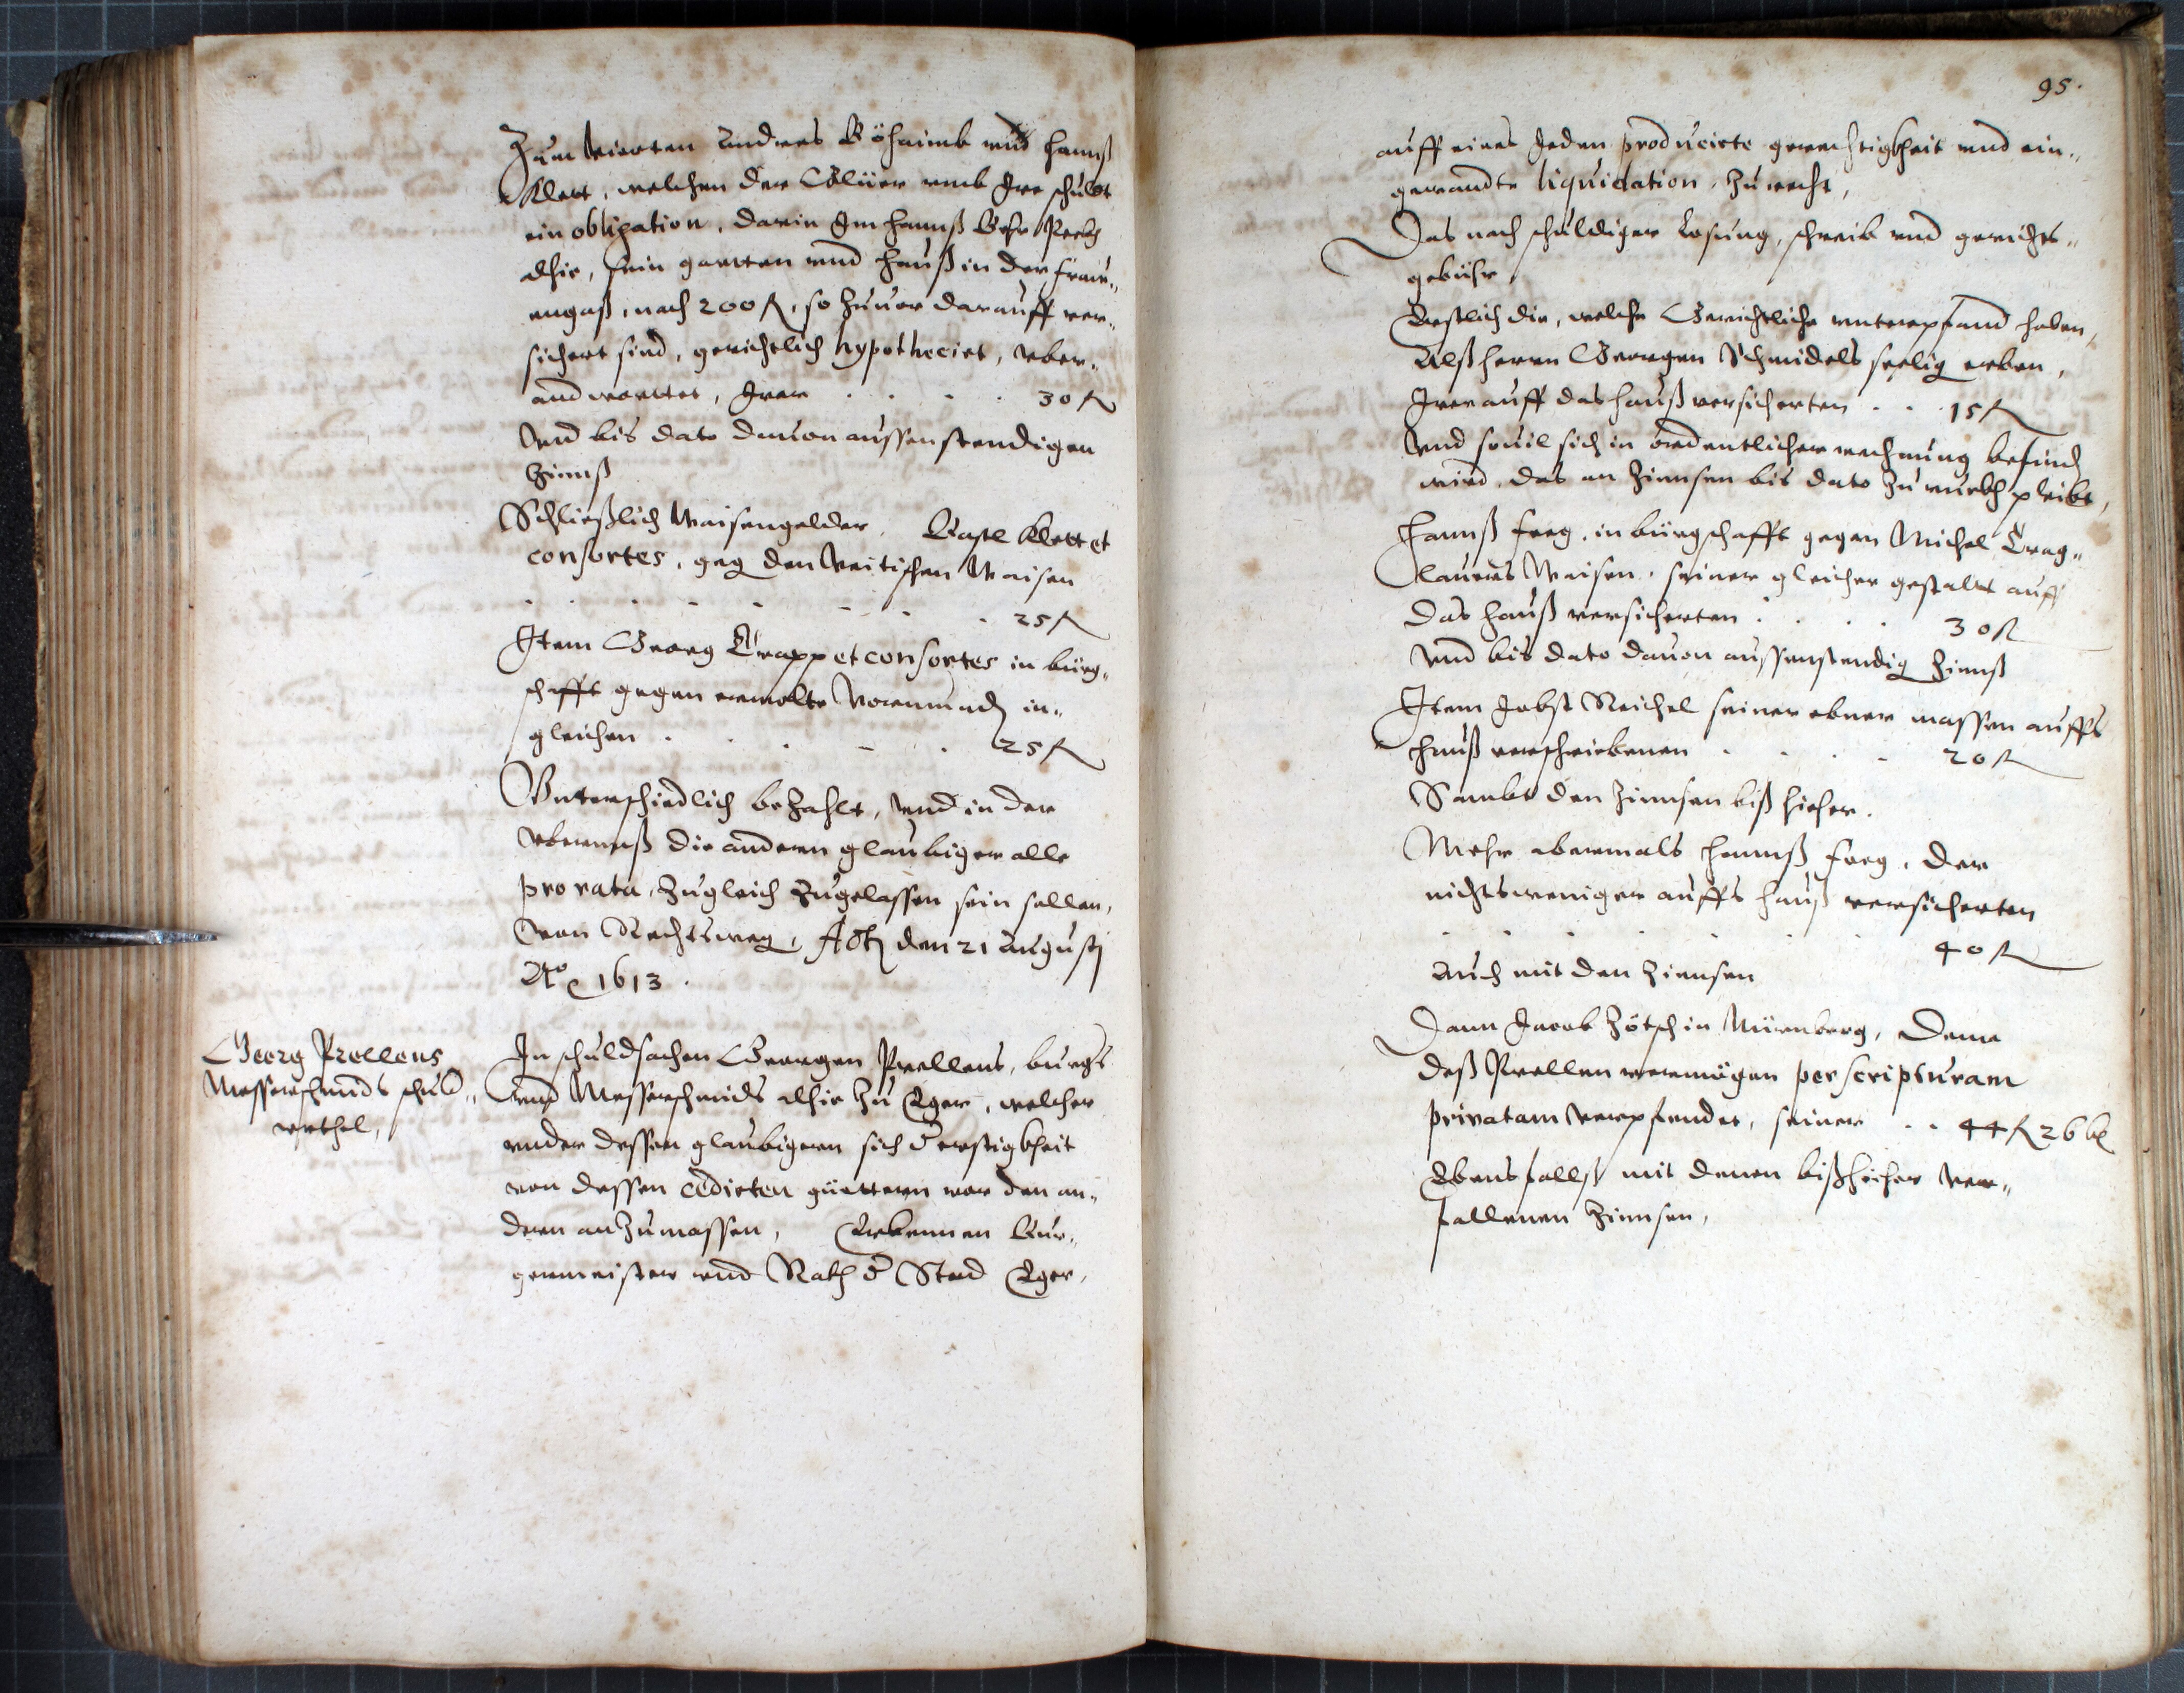 Zum Vierten Andres Böhaimb und Hannß
Klett, welchen der Glüer umb Ire schuldt
ein obligation, darin Im Hannß
alhie, sein gartten und Hauß in der Frau„
engaß, nach 200 fl, so zuuor darauff ver„
sichert sind, gerichtlich hypotheciet, vber„
andworttet, Irer . . . . 30 fl
Vnd bis dato dauon aussenstendigen
Zinnß
Schließlich Waisengelder, Bastl Klett et
consortes, geg den Veitischen Waisen
. . . . . . . 25 fl
Item Georg Trapp et consortes in bürg„
schafft gegen ermelte Vormund in„
gleichen . . . . . 25 fl
Vnterschiedlich bezahlt, vnd in der
vbermaß die andern glaubiger alle
pro rata, zugleich zugelassen sein sollen,
Von Rechtsweg, Actu den 21 Augusti
Ao 1613.
Georg Prellens
Messerschmids schuld„
urthel,
In schuldsachen Georgen Prellens, burgs
und Messerschmids alhie zu Eger, welcher
under dessen glaubigern sich d erstigkheit
von dessen cedirten güettern vor den an„
dern anzumassen, Erkennen Bur„
germeister und Rath d Stad Eger,
95.
auff eines Jeden producirte gerechtigkheit und ein„
gewandte liquidation, zu recht,
Das nach schuldiger Losung, schreib und gerichts„
gebühr,
Erstlich die, welche Gerichtliche unterpfand haben,
Alß herrn Georgen Schmidels seelig erben,
Irer auff das hauß versicherten . . 15 fl
Vnd souil sich in ordentlicher rechnung befind
wird, das an Zinnsen bis dato zu ruckh pleibt,
HannßFerg, in bürgschafft gegen Michel Trag„
lauers Waisen, seiner gleicher gestalt auff
das hauß versicherten . . . . 30 fl
Vnd bis dato dauon aussenstendig Zinnß
Item Jobst Reichel seiner ebner massen auffs
hauß verschriebenen . . . . 20 fl
Sambt den Zinnsen biß hieher.
Mehr abermals Hannß Ferg, der
nichtsweniger auffs hauß versicherten
. . . . . . . 40 fl
Auch mit den Zinnsen
Dann Jacob Zötsch in Nürnberg, Deme
deß Prellen vermögen per scripturam
privatam verpfendet, seiner . . 44 fl 26 kr
Ebensfallß mit denen bißhieher ver„
fallenen Zinnsen,